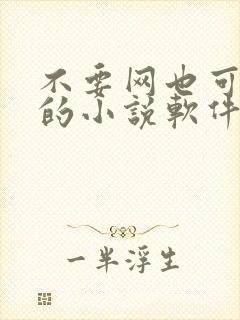 不要网也可
的小説軟件
一半浮生